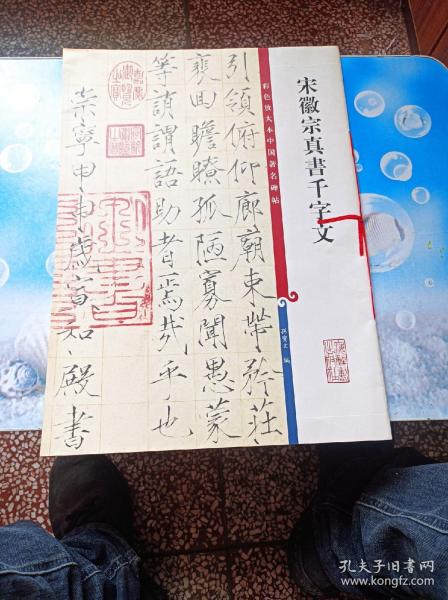 宋徽宗真書千字文
彩色放大本中国著名碑帖
孫寶文 編
引領俯仰廊廟束帶矜莊
裵回瞻眺孤陋寡聞愚蒙
等誚謂語助者焉哉乎也
崇寧甲申歲宣和殿書
孔夫子旧书网
www.kongfz.com